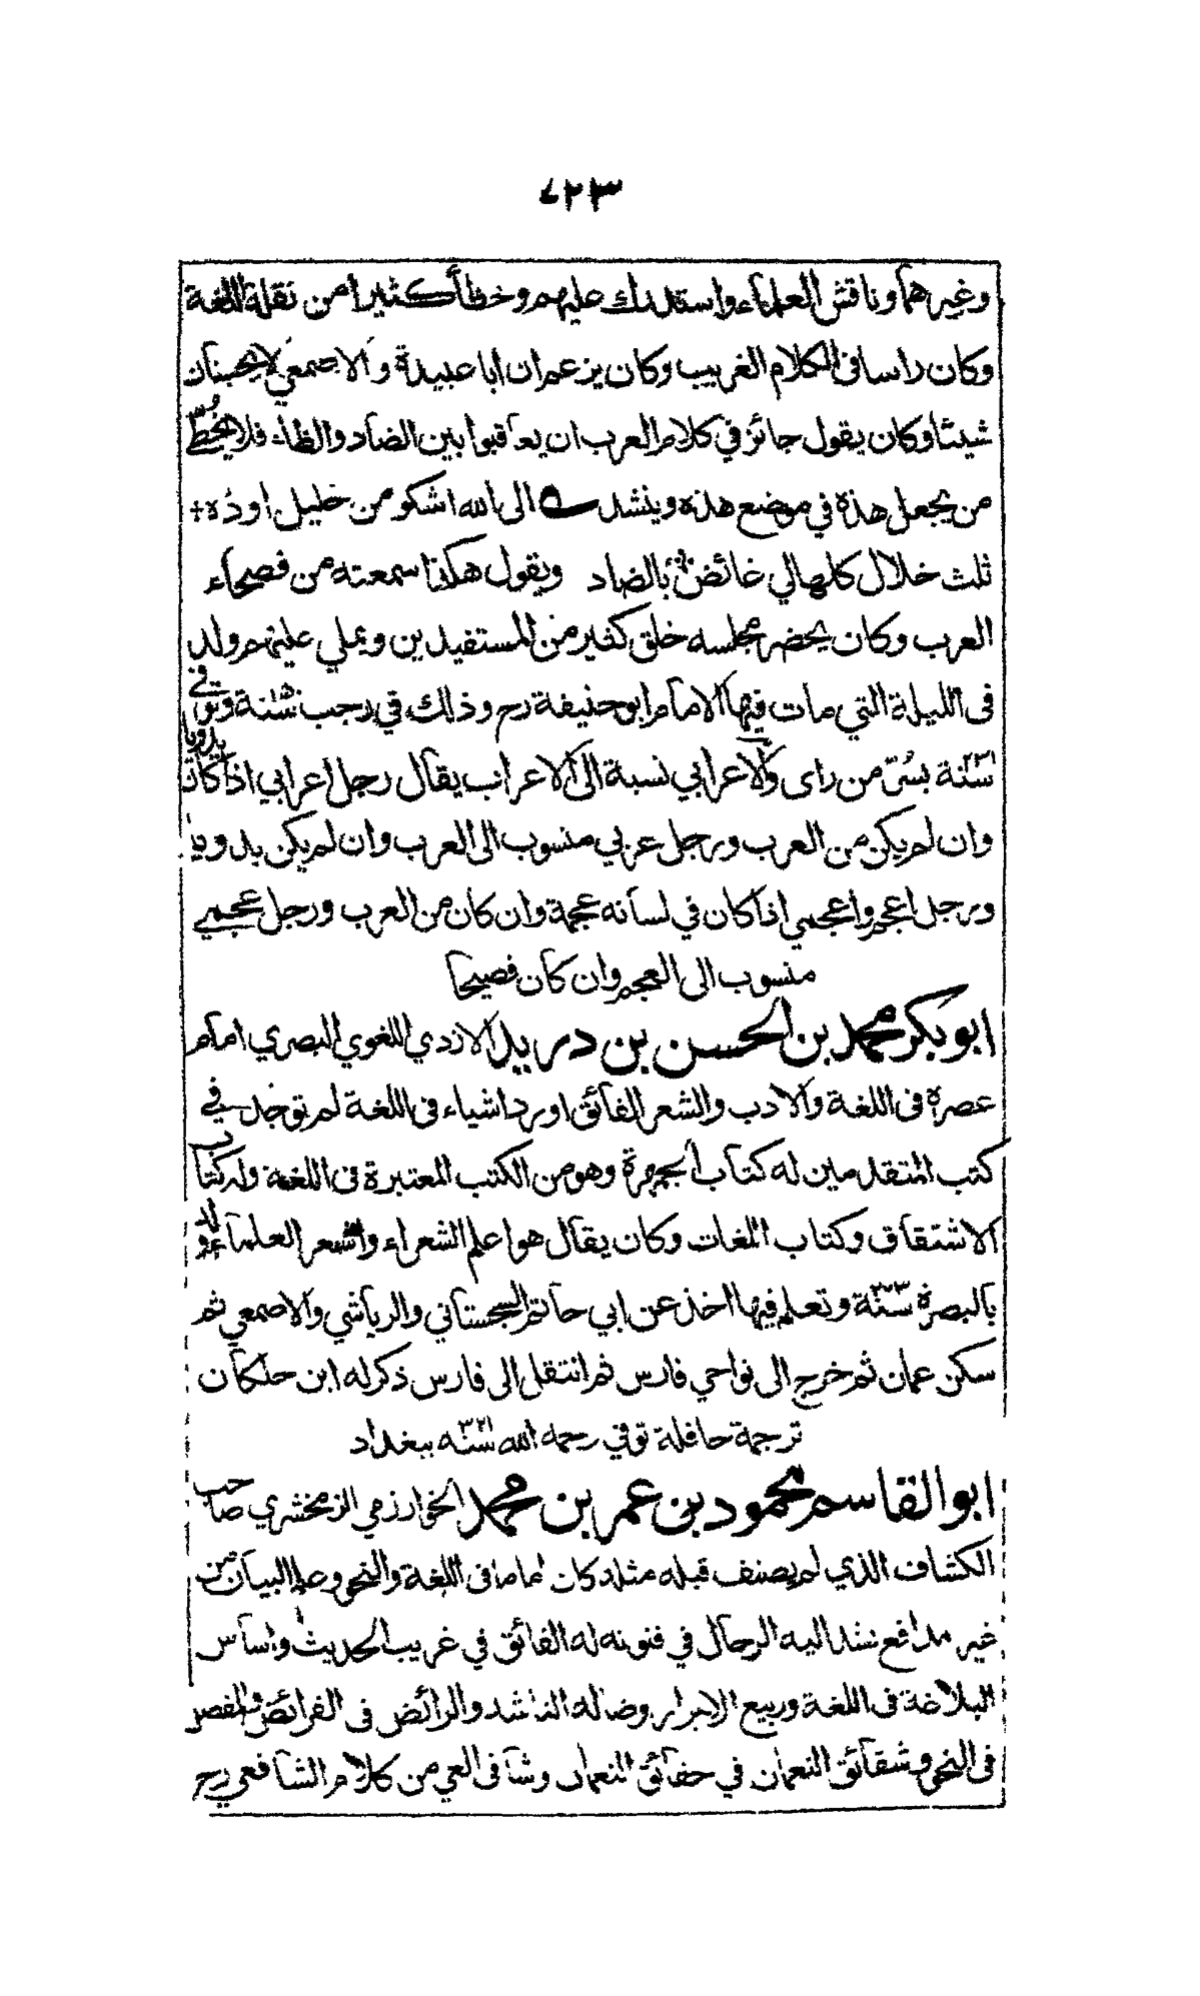 ٧٢٣
وغيرهما وناقش العلماء واستدرك عليهم وخطأ كثيرا من نقلة اللغة
وكان راسا فى الكلام الغريب وكان يزعم ان ابا عبيدة والاصمعي لا يحسنان
شيئا وكان يقول جائز في كلام العرب ان يعاقبوا بين الضاد والظاء فلا يخطّئ
من يجعل هذه في موضع هذه وينشد الى الله اشكو من خليل اودّه
ثلث خلال كلها لي غائض بالضاد ويقول هكذا سمعته من فصحاء
العرب وكان يحضر مجلسه خلق كثير من المستفيدين ويملي عليهم ولد
فى الليلة التي مات فيها الامام ابو حنيفة رح وذلك في رجب سنة وتوفي
سنة ٢٣١ بسُرّ من راى والاعرابي نسبة الى الاعراب يقال رجل اعرابي اذا كان بدويا
وان لم يكن من العرب ورجل عربي منسوب الى العرب وان لم يكن بدويا
ورجل اعجم واعجمي اذا كان في لسانه عجمة وان كان من العرب ورجل عجمي
منسوب الى العجم وان كان فصيحا
ابو بكر محمد بن الحسن بن دريد الازدي اللغوي البصري امام
عصره فى اللغة والادب والشعر الفائق اورد اشياء فى اللغة لم توجد في
كتب المتقدمين له كتاب الجمهرة وهو من الكتب المعتبرة فى اللغة وله كتاب
الاشتقاق وكتاب اللغات وكان يقال هو اعلم الشعراء واشعر العلماء ولد
بالبصرة سنة ٢٢٣ وتعلم فيها اخذ عن ابي حاتم السجستاني والرياشي والاصمعي ثم
سكن عمان ثم خرج الى نواحي فارس ثم انتقل الى فارس ذكر له ابن خلكان
ترجمة حافلة توفي رحمه الله سنه ٣٢١ ببغداد
ابو القاسم محمود بن عمر بن محمد الخوارزمي الزمخشري صاحب
الكشاف الذي لم يصنف قبله مثله كان اماما فى اللغة والنحو وعلم البيان من
غير مدافع تشد اليه الرحال في فنونه له الفائق في غريب الحديث واساس
البلاغة فى اللغة وربيع الابرار وضالة الناشد والرائض فى الفرائض والمفصل
فى النحو وشقائق النعمان في حقائق النعمان وشافى العي من كلام الشافعي رح